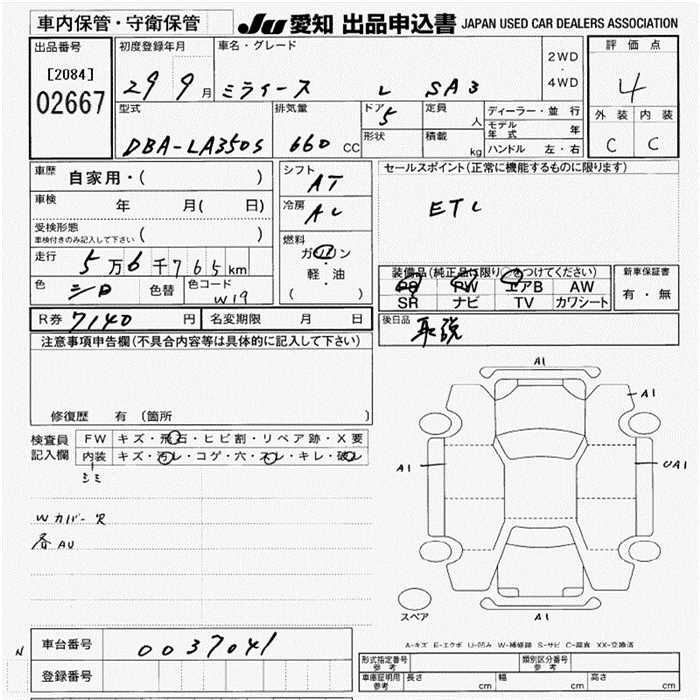 車内保管・守衛保管
JU 愛知 出品申込書 JAPAN USED CAR DEALERS ASSOCIATION
出品番号
[2084]
02667
初度登録年月
29 9月
車名・グレード
ミライース L SA3
2WD
・
4WD
評価点
4
外装 内装
C C
型式
DBA-LA350S
排気量
660 CC
ドア
5
形状
定員
人
積載
kg
ディーラー・並行
モデル年式 年
ハンドル 左・右
車歴 自家用・( )
車検 年 月( 日)
受検形態
車検付きのみ記入して下さい ( )
走行 5万6千765km
色 シロ 色替 色コード W19
シフト
AT
冷房
AC
燃料
ガソリン
・
軽・油
( )
セールスポイント(正常に機能するものに限ります)
ETC
装備品(純正品は限り○をつけてください)
PS PW エアB AW
SR ナビ TV カワシート
新車保証書
有・無
R券 7140 円 名変期限 月 日
後日品 取説
注意事項申告欄(不具合内容等は具体的に記入して下さい)
修復歴 有(箇所 )
検査員記入欄
FW キズ・飛石・ヒビ割・リペア跡・X要
内装 キズ・汚レ・コゲ・穴・スレ・キレ・破レ
シミ
Wカバー
各AU
A1
A1
A1
UA1
A1
スペア
A-キズ E-エクボ U-凹み W-補修跡 S-サビ C-腐食 XX-交換済
N
車台番号 0037041
登録番号
形式指定番号
参考
類別区分番号
参考
車庫証明用
参考
長さ cm 幅 cm 高さ cm